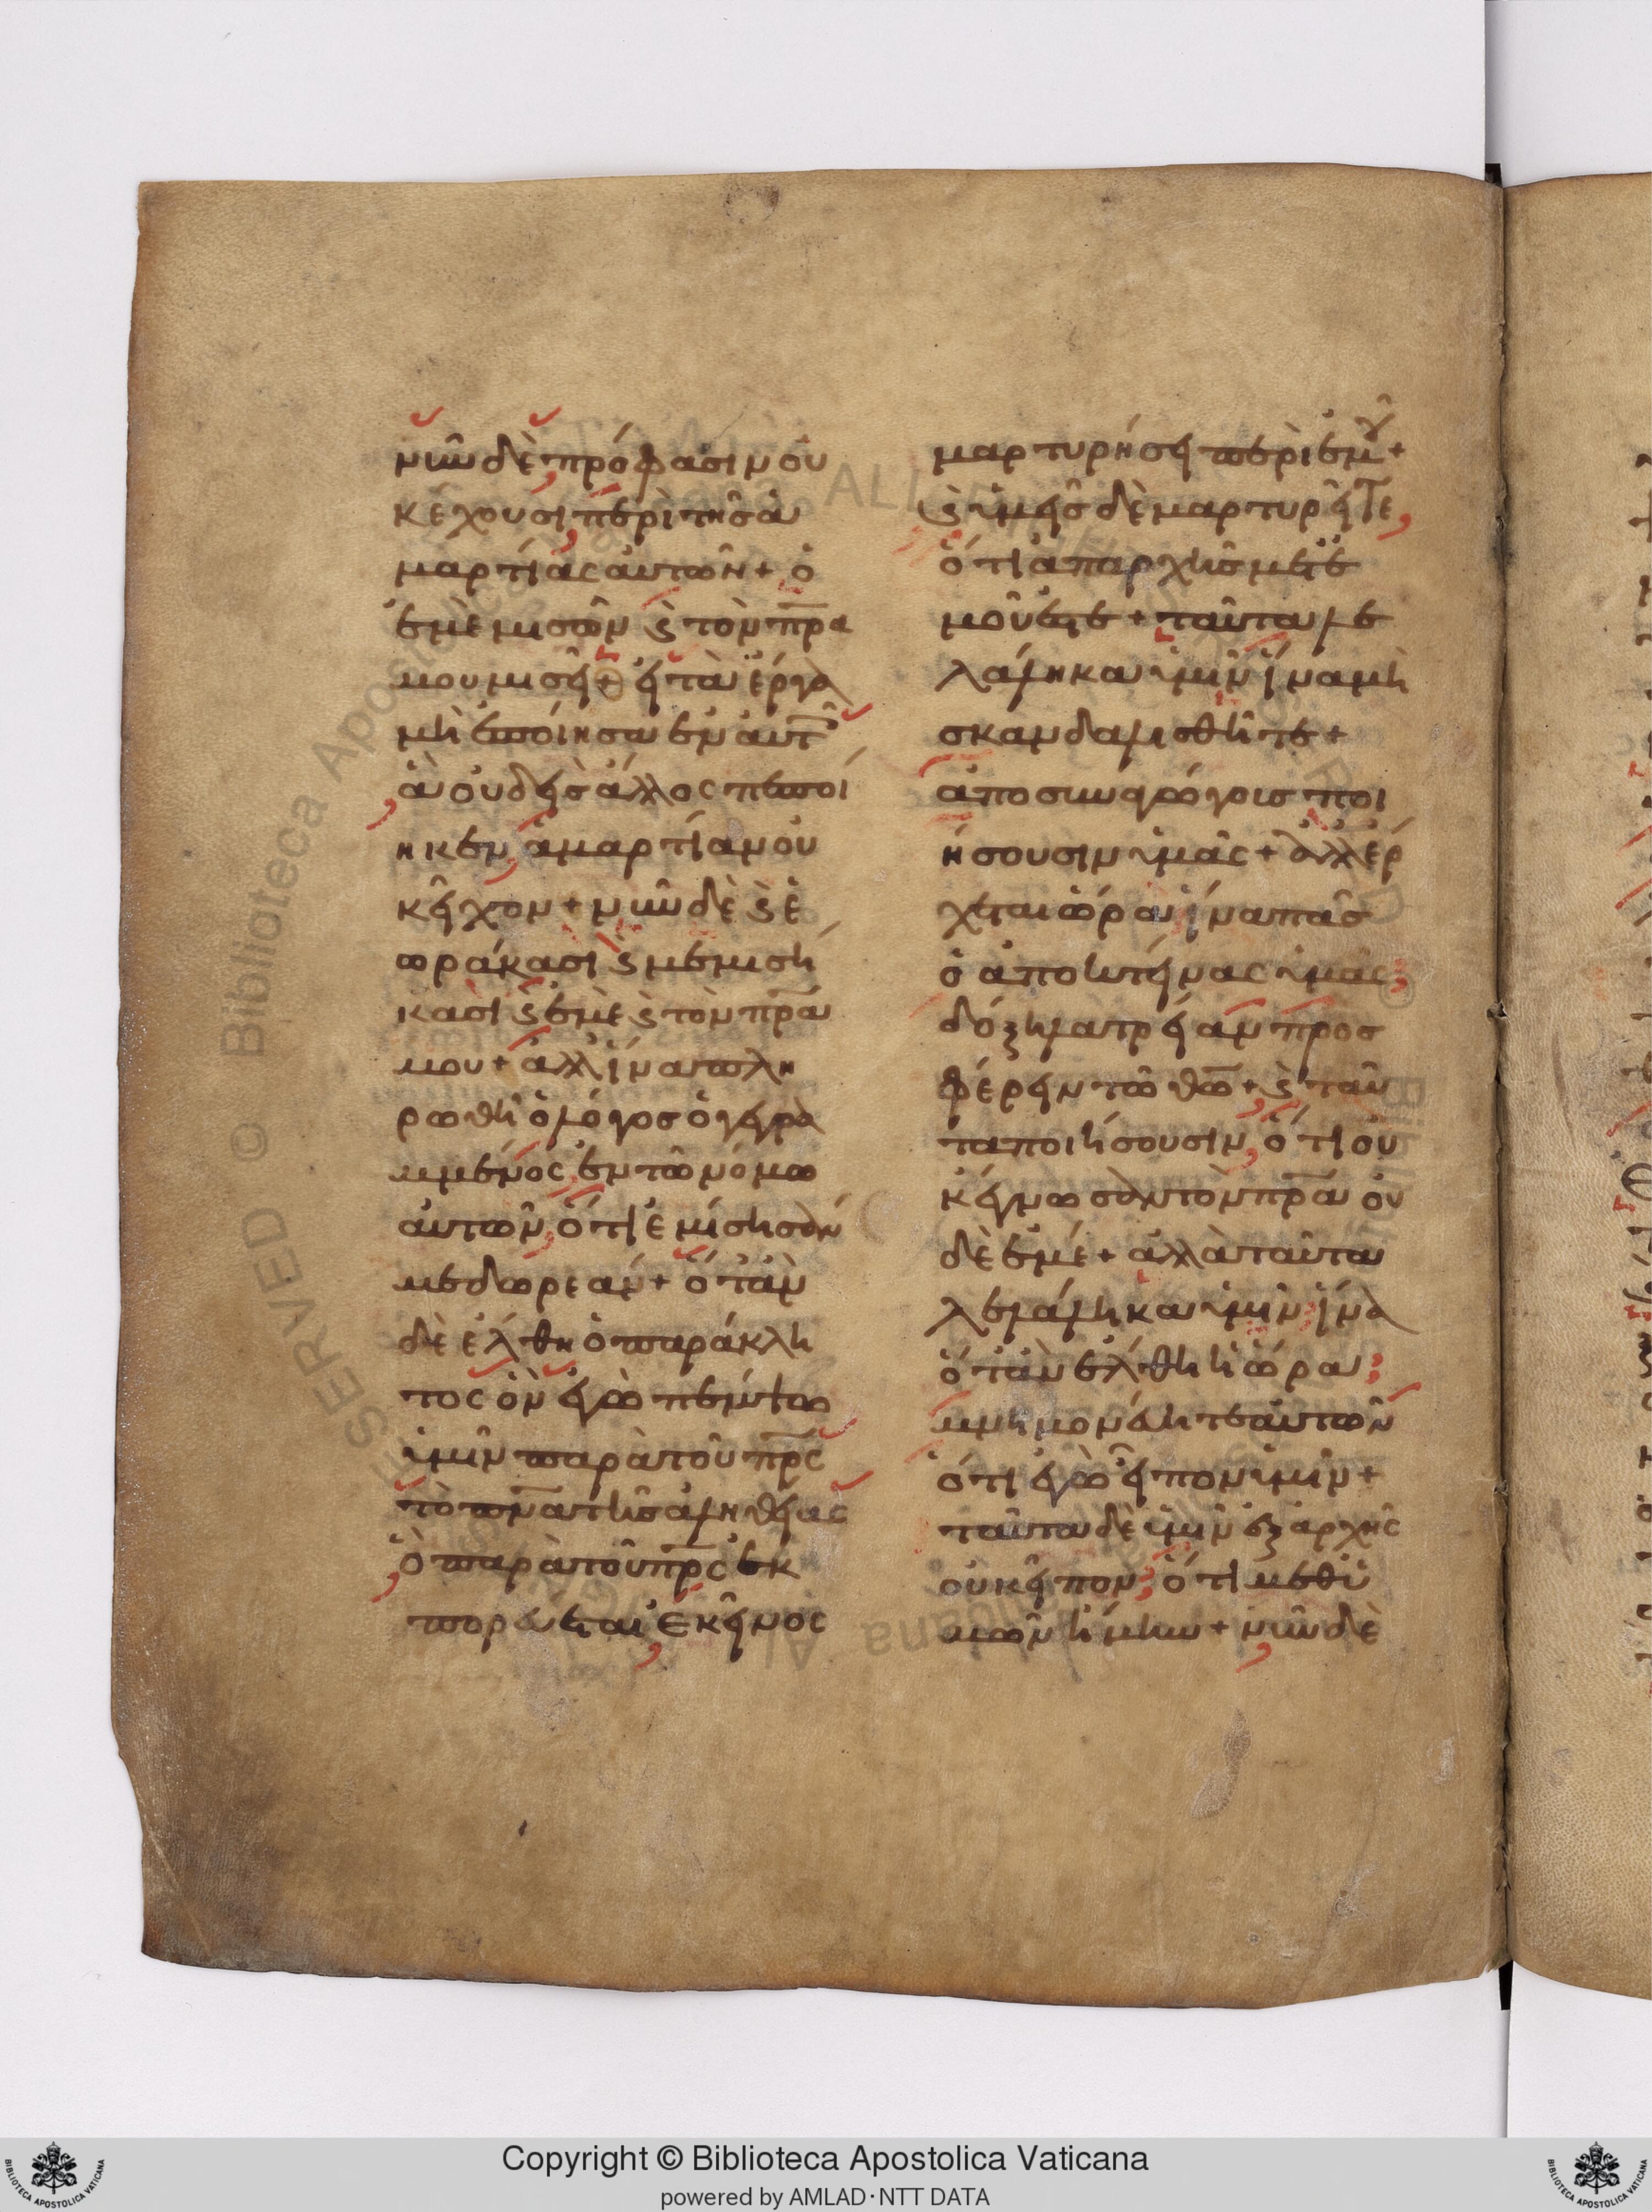 νῦν δὲ πρόφασιν οὐ
κ έχουσι περὶ τῆσ ἁ
μαρτίας ἀυτῶν + ὁ
ἐμὲ μισῶν ϛ τὸν πρα
μου μισεῖ + εἰ τὰ ἔργα
μὴ ἐποίησα ἐν ἀυτοῖς
ἃ οὐδεὶσ ἄλλος πεποί
ηκεν, ἁμαρτίαν οὐ
κ εῖχον + νῦν δὲ ϛ ἑ
ωράκασι ϛ μεμισή
κασι ϛ ἐμὲ ϛ τὸν πρα
μου + ἀλλ ἵνα πλη
ρωθῆ ὁ λόγοσ ὁ γεγρα
μμένος ἐν τῶ νόμω
ἀυτῶν, ὅτι ἐμίσησάν
με δωρεάν + ὅταν
δὲ ἔλθη ὁ παράκλη
τος ὃν ἐγὼ πέμψω
ὑμῖν παρὰ τοῦ πρς
τὸ πνα τῆσ ἀληθείας
ὃ παρὰ τοῦ πρς ἐκ
πορεύεται, Ἐκεῖνος
μαρτυρήσει περὶ ἐμοῦ +
ϛ ὑμεῖσ δὲ μαρτυρεῖΤε,
ὅτι ἀπ αρχῆσ μετ ἐ
μοῦ ἐστε + ταῦτα λε
λάληκα ὑμῖν ἵνα μὴ
σκανδαλισθῆτε +
ἀποσυναγώγουσ ποι
ήσουσιν ὑμᾶς + ἀλλ έρ
χεται ὥρα ἵνα πᾶσ
ὁ ἀποκτείνας ὑμᾶς
δόξη λατρείαν προσ
φέρειν τῶ θῶ +, ϛ ταῦ
τα ποιήσουσιν, ὅτι οὐ
κ έγνωσαν τὸν πρα οὐ
δὲ ἐμέ + ἀλλὰ ταῦτα
λελάληκα ὑμῖν ἵνα
ὅταν ἔλθη ἡ ὥρα,
μνημονεύητε ἀυτῶν
ὅτι ἐγὼ εἶπον ὑμῖν +
ταῦτα δὲ ὑμῖν ἐξ ἀρχῆς
οὐκ εἶπον, ὅτι μεθ ὑ
μῶν ἤμην + νῦν δὲ
Copyright © Biblioteca Apostolica Vaticana
powered by AMLAD·NTT DATA